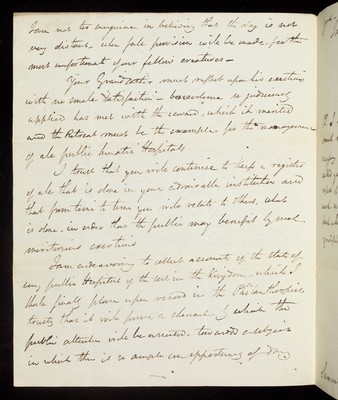 I am not too sanguine in believing that the day is not
very distant, when safe provision will be made for the
most unfortunate of our fellow creatures —
Your Grandfather must reflect upon his exertions
with no small satisfaction — benevolence so judiciously
applied has met with the reward, which it merited
and the Retreat must be the example for the management
of all public lunatic Hospitals
I trust that you will continue to keep a register
of all that is done in your admirable institution and
that from time to time you will relate to others, what
is done, in order that the public may benefit by such
meritorious exertions
I am endeavoring to collect accounts of the state of
every public Hospital of the sort in the Kingdom, which I
shall finally place upon record in the Philanthropist
trusting that it will prove a channel by which the
public attention will be arrested, towards a subject
in which there is so ample an opportunity of doing